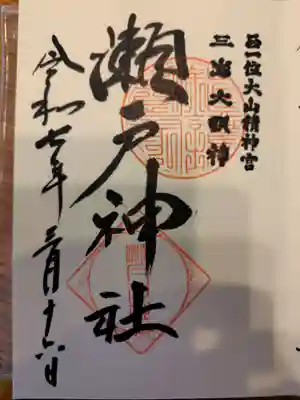 正一位大山積神宮
三島大明神
瀬戸神社
令和七年三月十六日